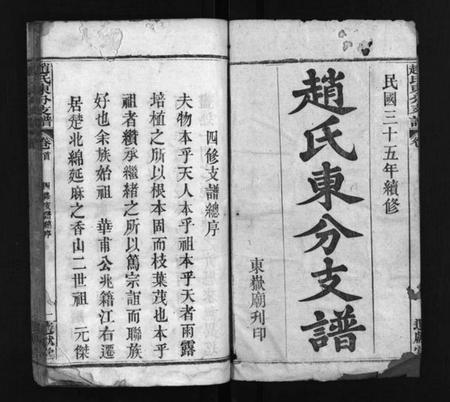 民國三十五年續修
趙氏東分支譜
東嶽廟刊印
四修支譜總序
夫物本乎天人本乎祖本乎天者雨露
培植之所以根本固而枝葉茂也本乎
祖者纘承繼緒之所以篤宗誼而聯族
好也余族始祖 華甫公兆籍江右遷
居楚北綿延麻之香山二世祖 元傑
趙氏東分支譜
卷首
四修支譜總序
一
趙氏東分支譜
卷